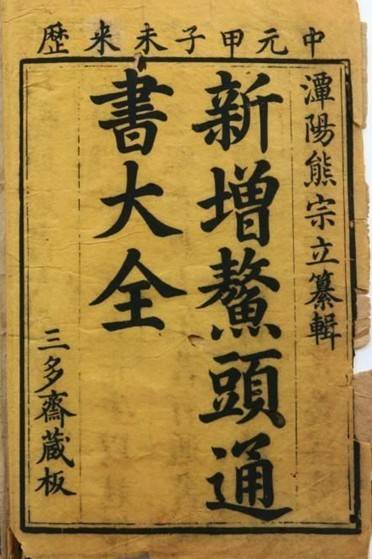 中元甲子未来歷
潭陽熊宗立纂輯
新增鰲頭通
書大全
三多齋藏板